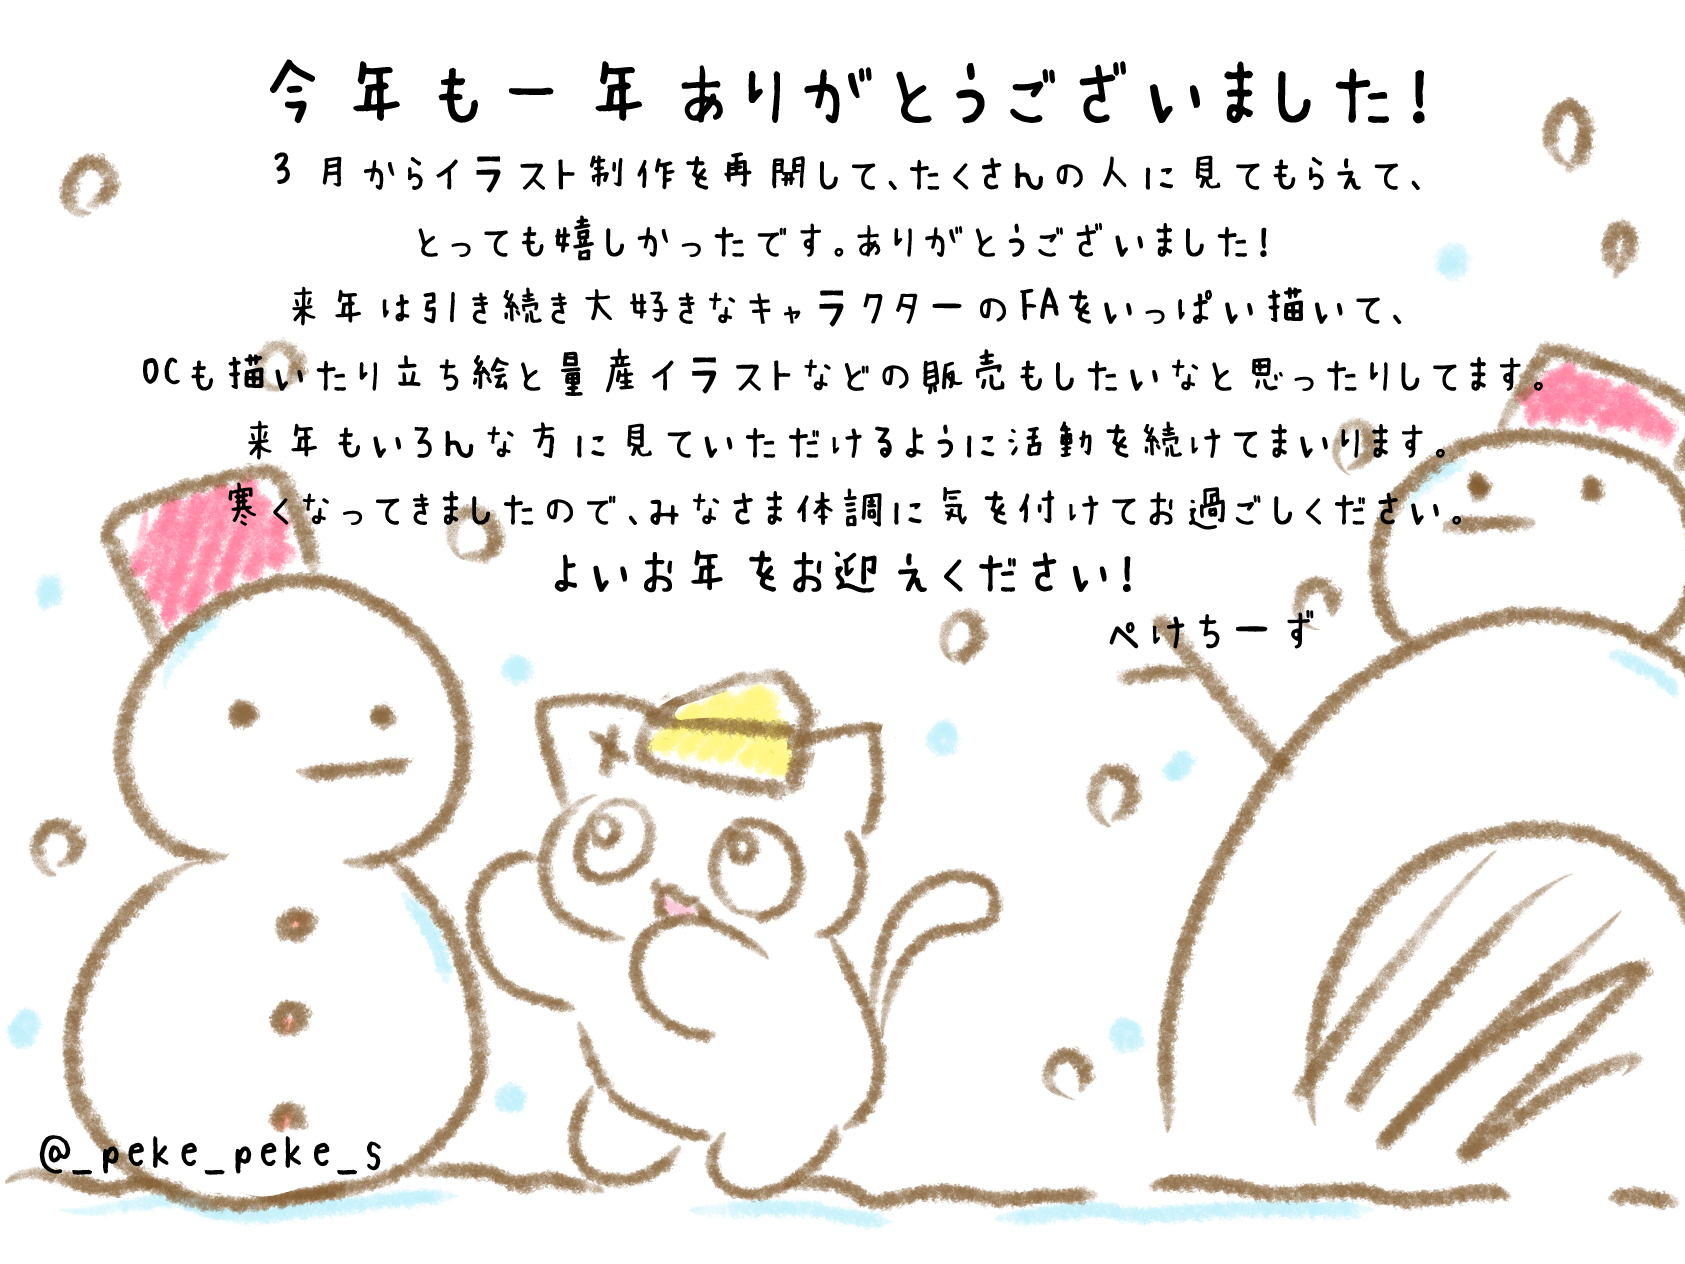 今年も一年ありがとうございました!
3月からイラスト制作を再開して、たくさんの人に見てもらえて、
とっても嬉しかったです。ありがとうございました!
来年は引き続き大好きなキャラクターのFAをいっぱい描いて、
OCも描いたり立ち絵と量産イラストなどの販売もしたいなと思ったりしてます。
来年もいろんな方に見ていただけるように活動を続けてまいります。
寒くなってきましたので、みなさま体調に気を付けてお過ごしください。
よいお年をお迎えください!
ぺけちーず
@_peke_peke_s